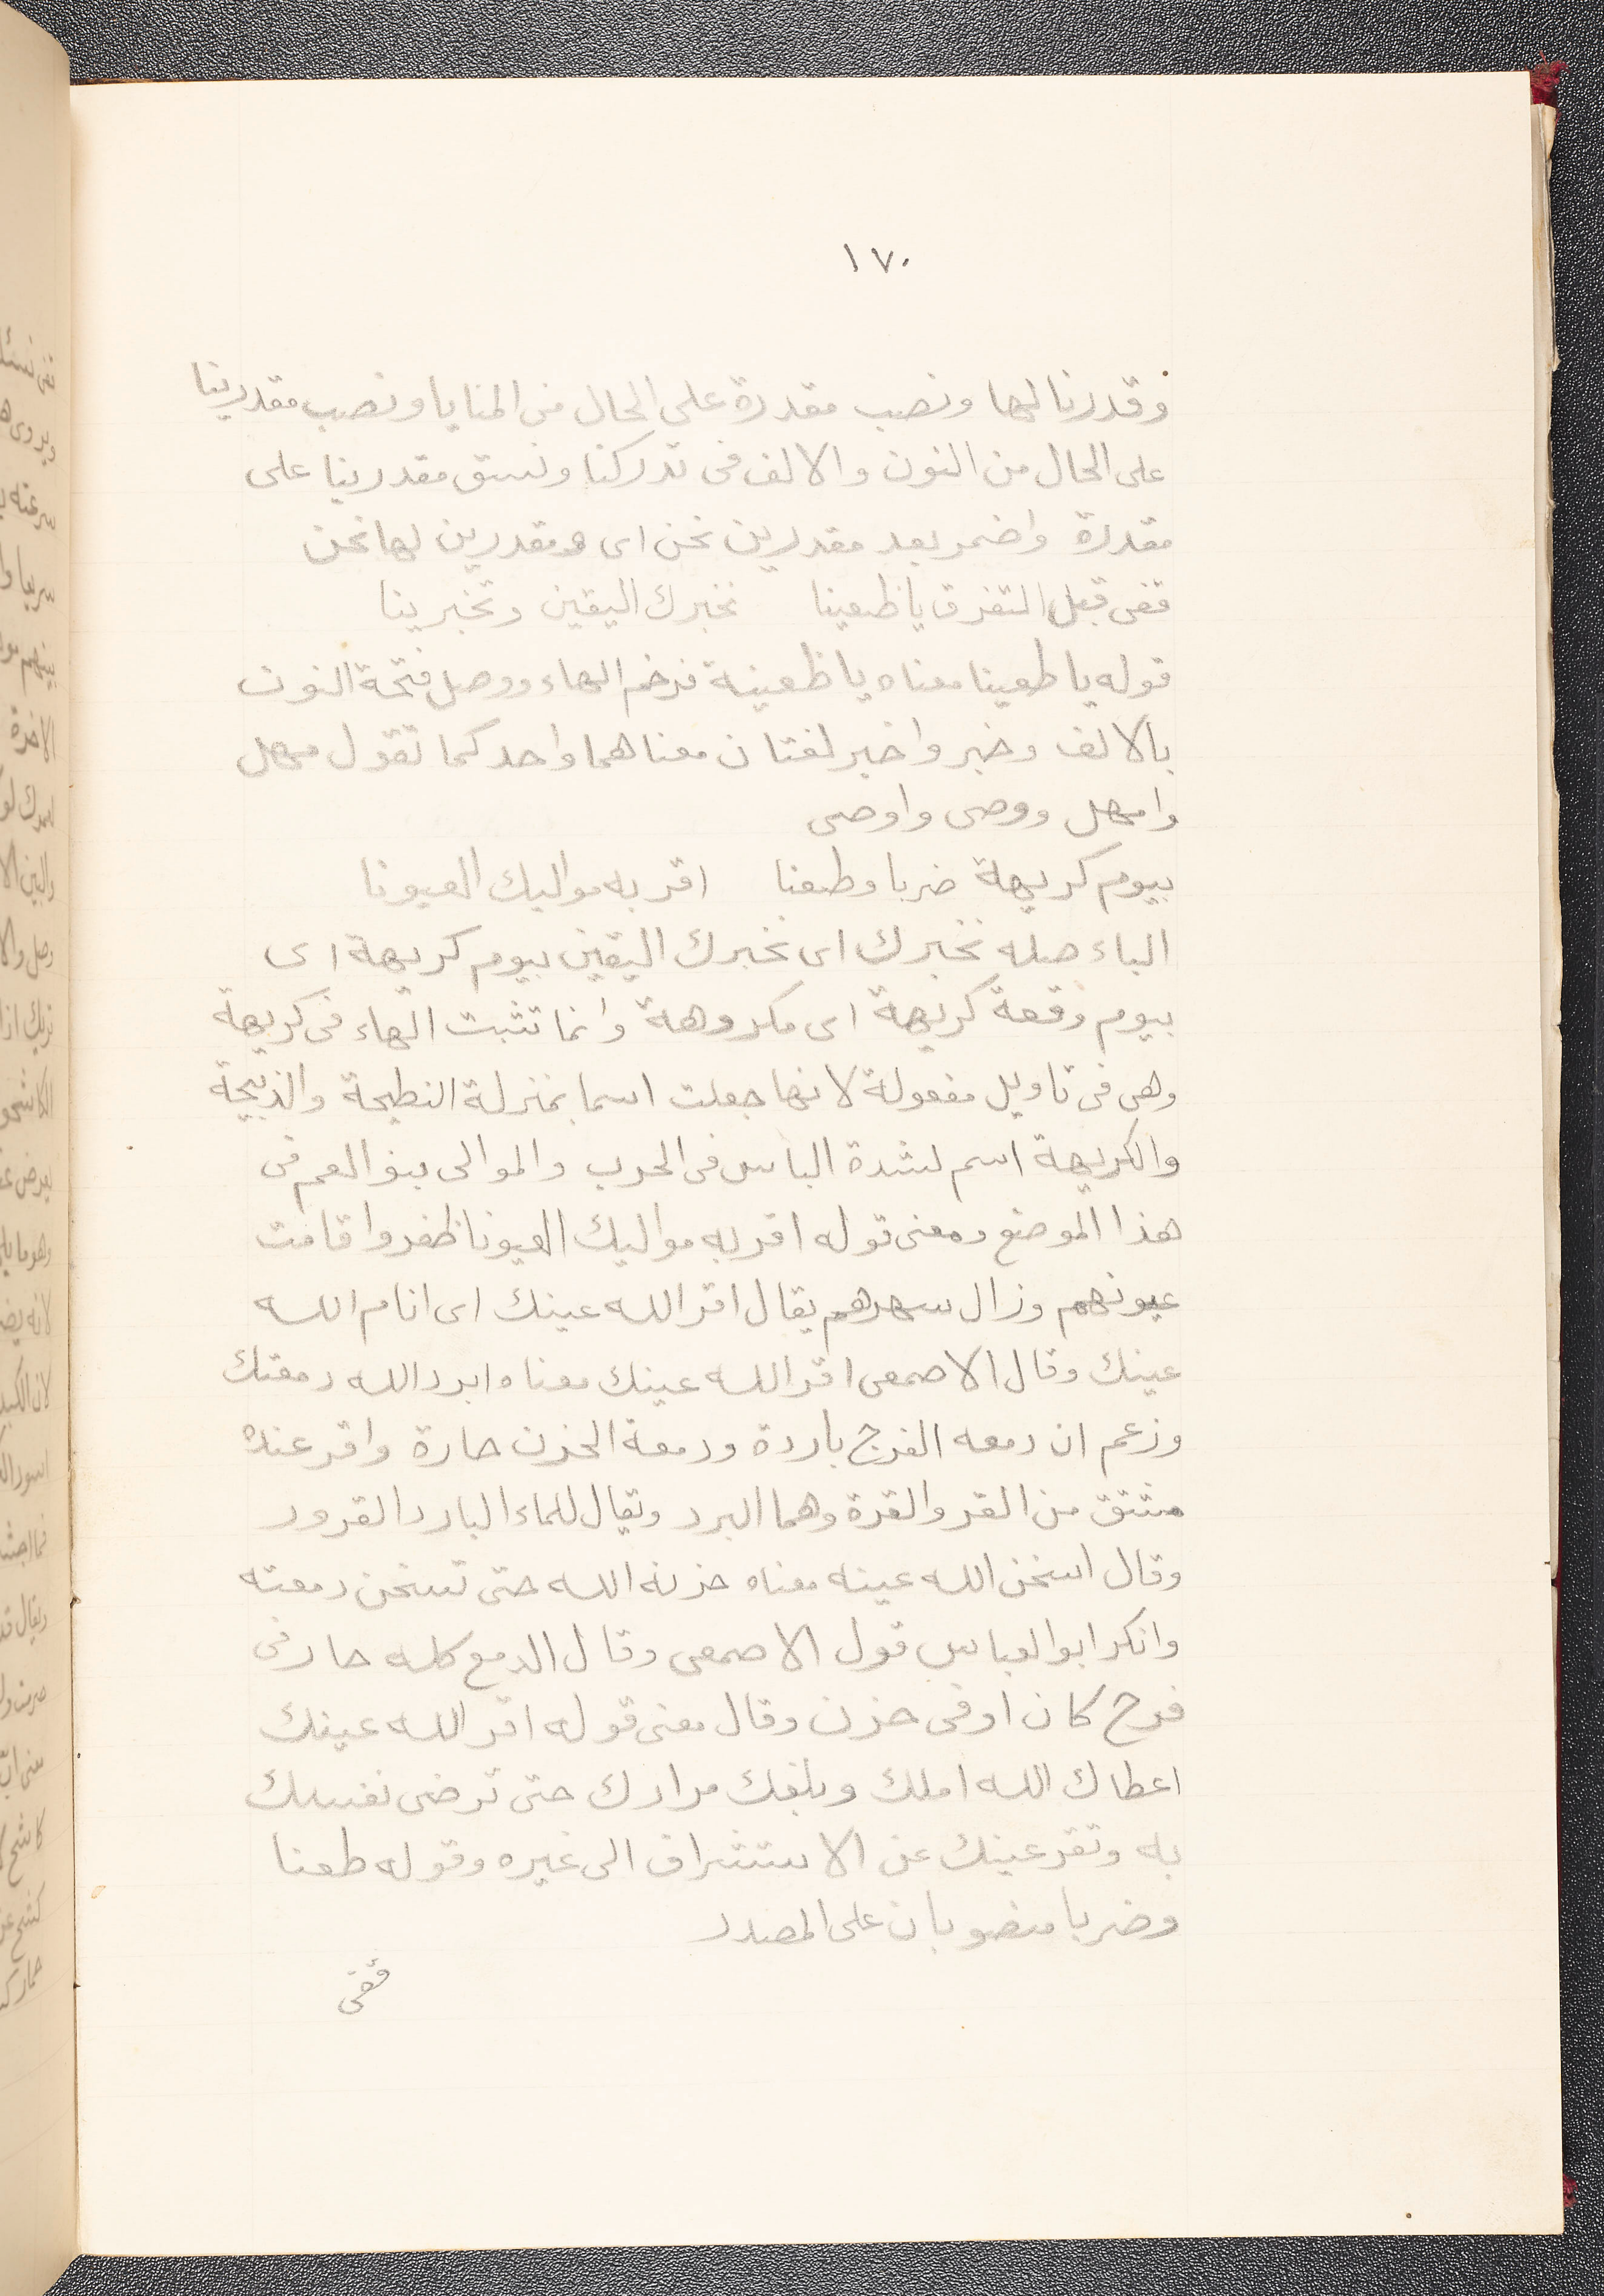 ١٧٠
وقدرنا لها ونصب مقدرة على الحال من المنايا ونصب مقدرينا
على الحال من النون والالف فى تدركنا ونسق مقدرينا على
مقدرة واضمر بعد مقدرين نحن اى ومقدرين لها نحن
قفى قبل التفرق يا ظعينا نخبرك اليقين وتخبرينا
قوله يا طعينا معناه يا ظعينة فرخم الهاء ووصل فتحة النون
بالالف وخبر واخبر لغتان معناهما واحد كما تقول مهل
وامهل ووصى واوصى
بيوم كريهة ضربا وطعنا اقر به مواليك العيونا
الباء صله نخبرك اى نخبرك اليقين بيوم كريهة اى
بيوم وقعة كريهة اى مكروهة وانما تثبت الهاء فى كريهة
وهى فى تاويل مفعولة لانها جعلت اسما بمنزلة النطيحة والذبيحة
والكريهة اسم لشدة الباس فى الحرب والموالى بنو العم فى
هذا الموضع ومعنى قوله اقر به مواليك العيونا ظفروا قامت
عيونهم وزال سهرهم يقال اقر الله عينك اى انام الله
عينك وقال الاصمعى اقر الله عينك معناه ابرد الله دمعتك
وزعم ان دمعه الفرح باردة ودمعة الحزن حارة واقر عنده
مشتق من القر والقرة وهما البرد ويقال للماء البارد القرور
وقال اسخن الله عينه معناه حزنه الله حتى تسخن دمعته
وانكر ابو العباس قول الاصمعى وقال الدمع كله حار فى
فرح كان او فى حزن وقال معنى قوله اقر الله عينك
اعطاك الله املك وبلغك مرادك حتى ترضى نفسك
به وتقر عينك عن الاستشراف الى غيره وقوله طعنا
وضربا منصوبان على المصدر
قفى